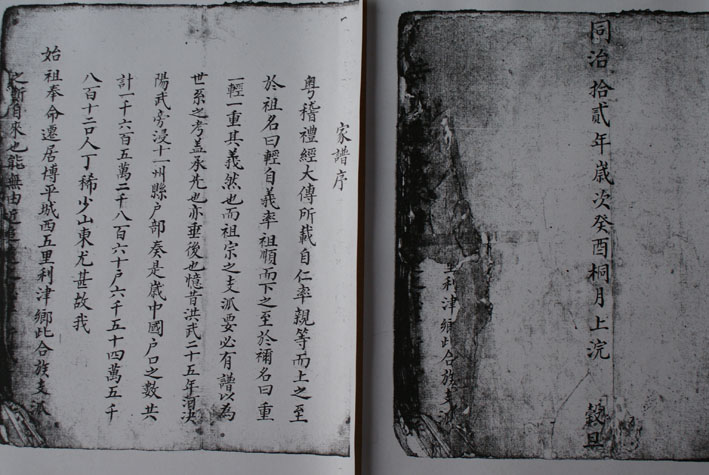 同治拾貳年歲次癸酉桐月上浣 穀旦
里利津鄉此合族支派
家譜序
粵稽禮經大傳所載自仁率親等而上之至
於祖名曰輕自義率祖順而下之至於禰名曰重
一輕一重其義然也而祖宗之支派要必有譜以為
世系之考盖承先也亦垂後也憶昔洪武二十五年河決
陽武旁浸十一州縣户部奏是歲中國户口之數共
計一千六百五萬二千八百六十户六千五十四萬五千
八百十二口人丁稀少山東尤甚故我
始祖奉命遷居博平城西五里利津鄉此合族支派
之所自來也能無由近